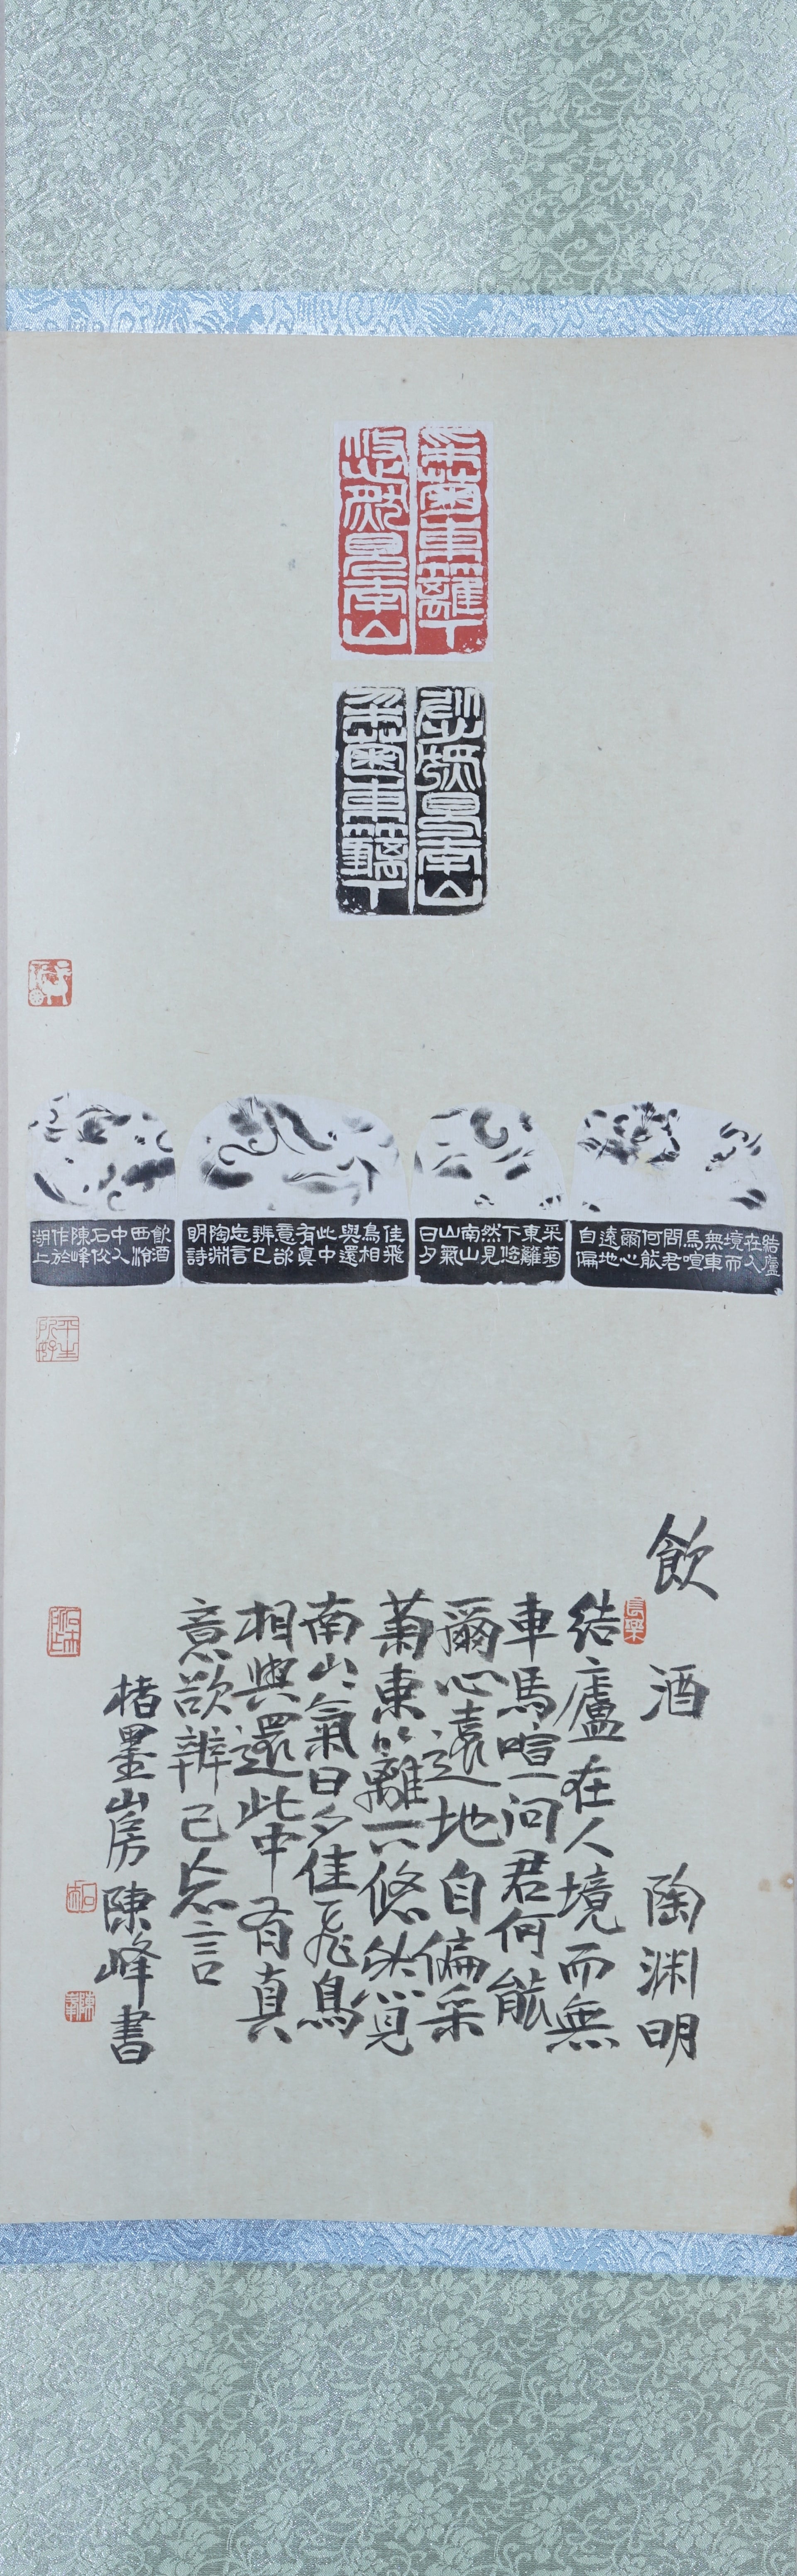 采菊東籬下
悠然見南山
采菊東籬下
悠然見南山
結廬
在人
境而
無車
馬喧
問君
何能
爾心
遠地
自偏
采菊
東籬
下悠
然見
南山
山氣
日夕
佳飛
鳥相
與還
此中
有真
意欲
辨已
忘言
陶淵
明詩
飲酒
西泠
中人
石
陳峰
作於
湖上
平生所好
飲酒 陶渊明
長樂
結廬在人境而無
車馬喧问君何能
爾心遠地自偏采
菊東籬下悠然見
南山〻氣日夕佳飛鳥
相與還此中有真
意欲辨已忘言
楮墨山房陳峰書
陳峰